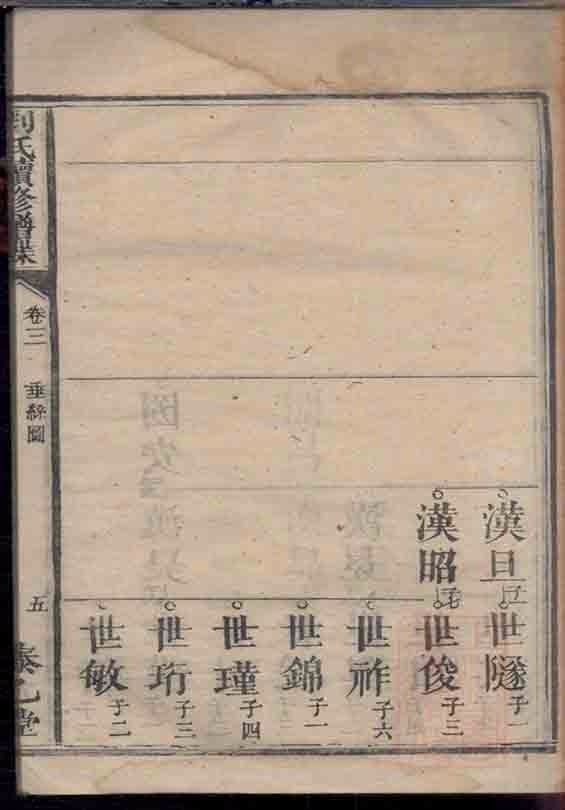 漢旦
世隧 子一
漢昭
世俊 子三
世祚 子六
世錦 子一
世瑾 子四
世珩 子三
世敏 子二
劉氏續修譜牒
卷三
垂絲圖
五